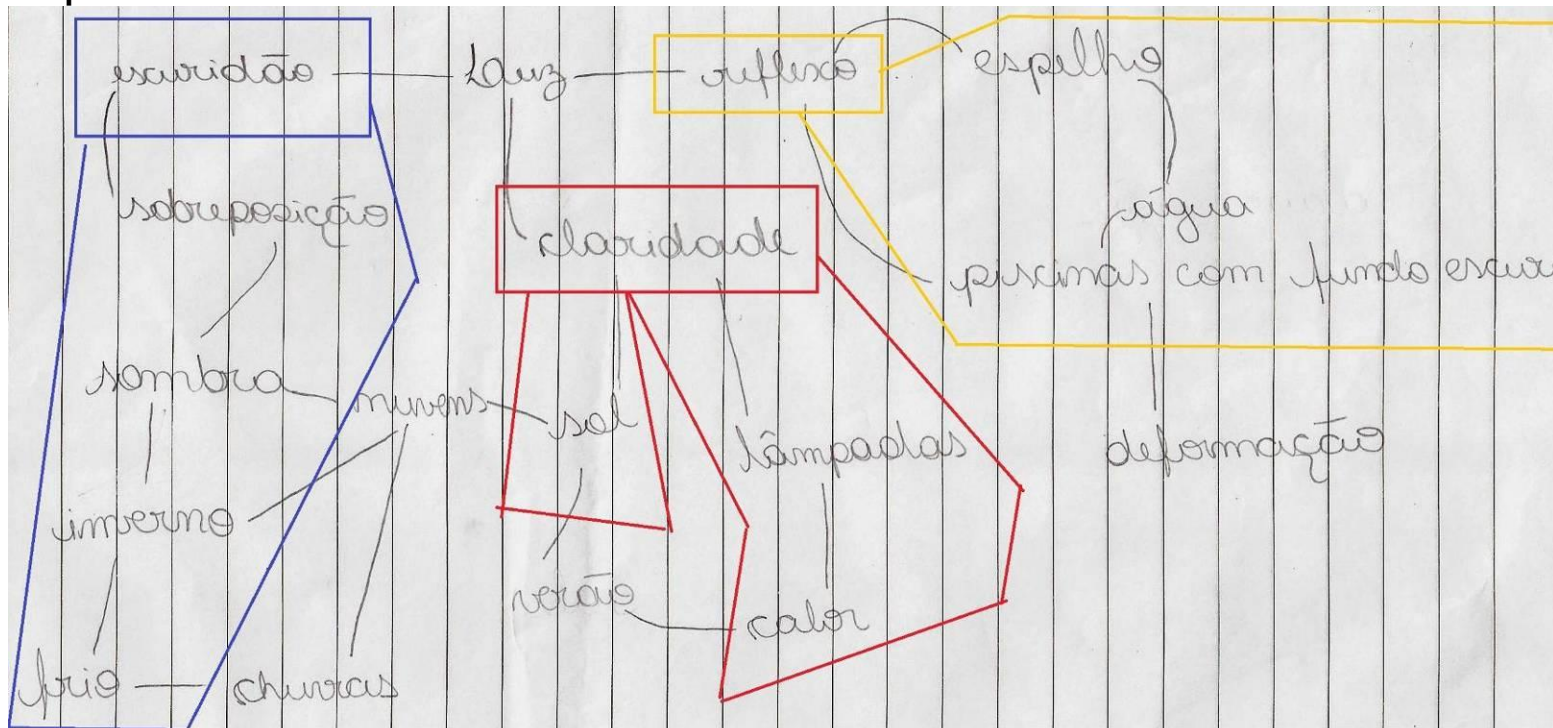 escuridão Luz reflexo espelho
sobreposição claridade água
piscinas com fundo escur
sombra nuvens sol lâmpadas deformação
inverno
verão calor
frio chuvas